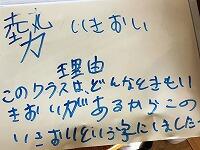 勢 いきおい
理由
このクラスは、どんなときもい
きおいがあるからこの
いきおいという字にしました。